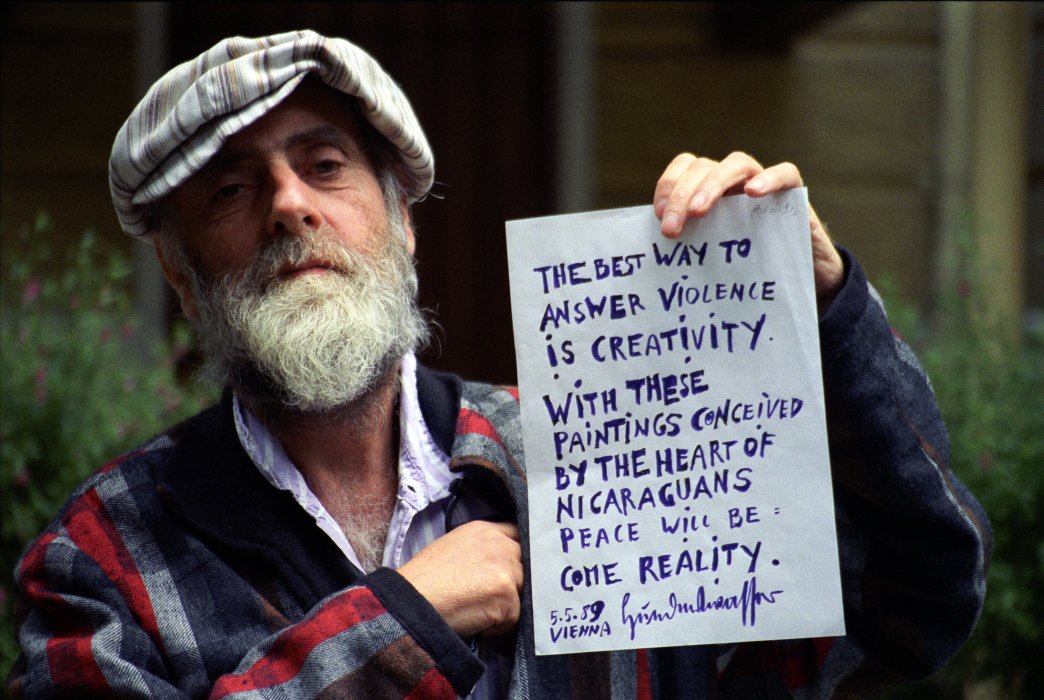 THE BEST WAY TO
ANSWER VIOLENCE
iS CREATiViTY.
WiTH THESE
PAiNTiNGS CONCEiVED
BY THE HEART OF
NiCARAGUANS
PEACE WiLL BE =
COME REALiTY.
5.5.89
ViENNA Hundertwasser